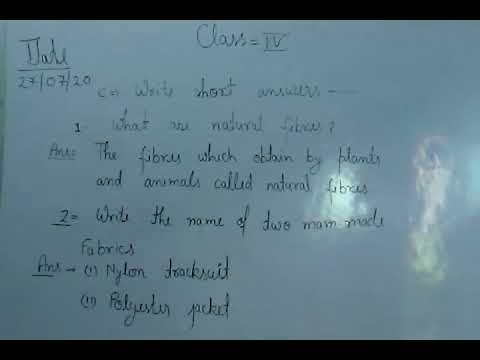 Date
27/07/20
Class = IV
C = Write short answers ---
1. What are natural fibres?
Ans: The fibres which obtain by plants
and animals called natural fibres
2 = Write the name of two mam made
Fabrics
Ans → (i) Nylon tracksuit
(ii) Polyester jacket